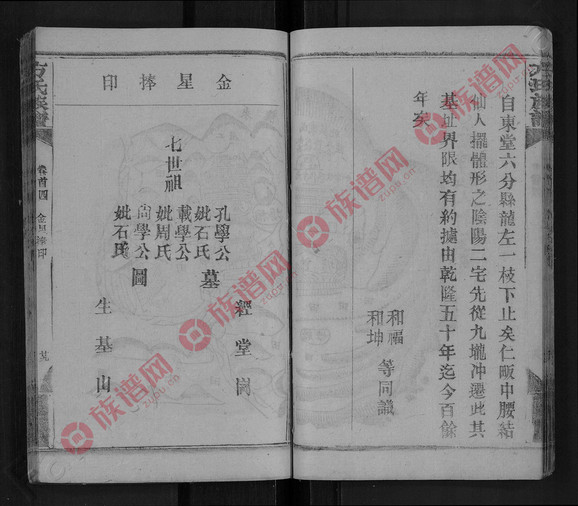 自東堂六分縣龍左一枝下止矣仁畈中腰結
仙人擺體形之陰陽二宅先從九壠冲遷此其
基址界限均有約據由乾隆五十年迄今百餘
年矣
和福
和坤
等同識
金星捧印
七世祖
孔學公
妣石氏
載學公
妣周氏
尚學公
妣石氏
墓圖
經堂園
生基山
方氏族譜
卷首四
金星捧印
族谱网
zupu.cn
族谱网
zupu.cn
族谱网
zupu.cn
族谱网
zupu.cn